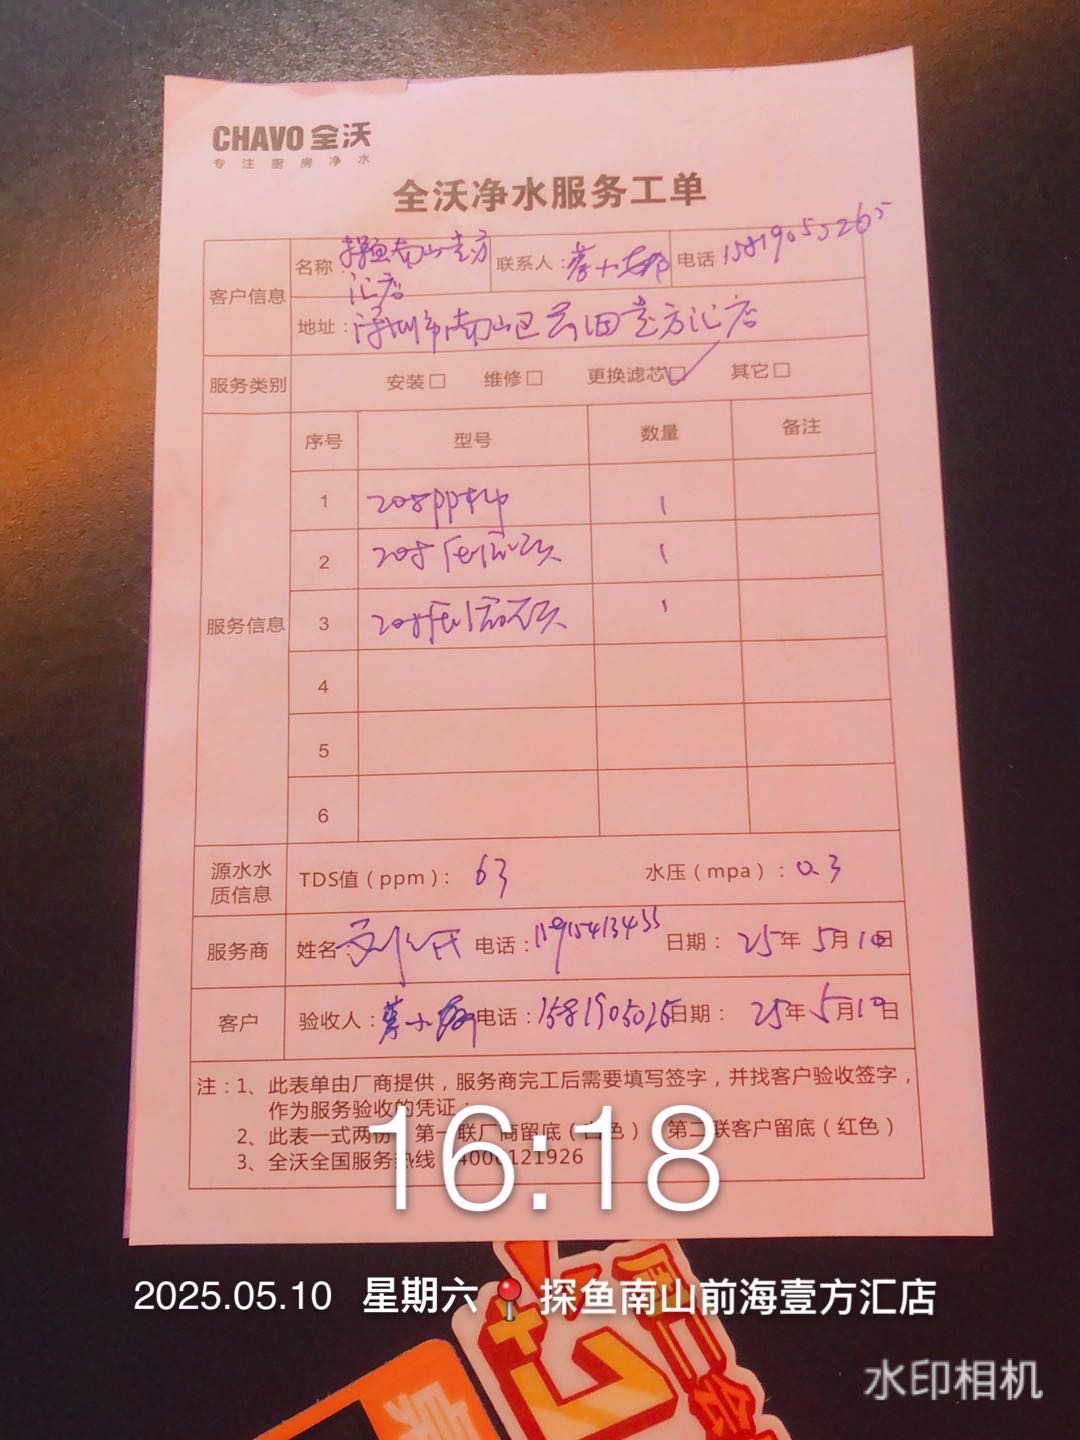 CHAVO 全沃
专注厨房净水
全沃净水服务工单
客户信息 名称：探鱼南山壹方汇店 联系人：蔡小娜 电话
地址：深圳市南山区 壹方汇店
服务类别 安装□ 维修□ 更换滤芯☑ 其它□
服务信息 序号 型号 数量 备注
1 208pp 1
2 208 1
3 208 1
4
5
6
源水水质信息 TDS值（ppm）：63 水压（mpa）：0.3
服务商 姓名 电话：15915413433 日期：25年5月10日
客户 验收人：蔡小娜 电话： 日期：25年5月10日
注：1、此表单由厂商提供，服务商完工后需要填写签字，并找客户验收签字，
作为服务验收的凭证；
2、此表一式两份，第一联厂商留底（白色），第二联客户留底（红色）
3、全沃全国服务热线 4006121926
16:18
2025.05.10 星期六 探鱼南山前海壹方汇店
水印相机